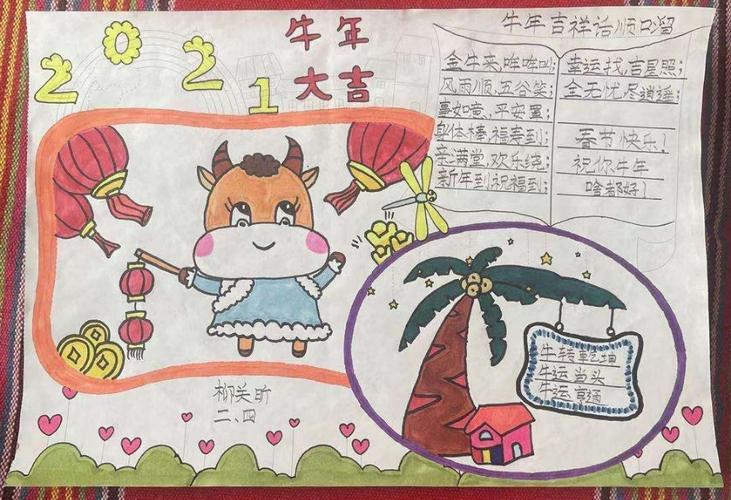 2021
牛年
大吉
牛年吉祥话顺口溜
金牛来,哞哞叫;
风雨顺,五谷笑;
事如意,平安罩;
身体棒,福寿到;
亲满堂,欢乐绕;
新年到祝福到;
幸运找,吉星照;
全无忧尽逍遥;
春节快乐!
祝你牛年
啥都好!
牛转乾坤
牛运当头
牛运亨通
柳关昕
二、四